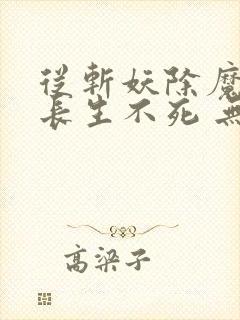 從斬妖除魔
長生不死 無
高梁子